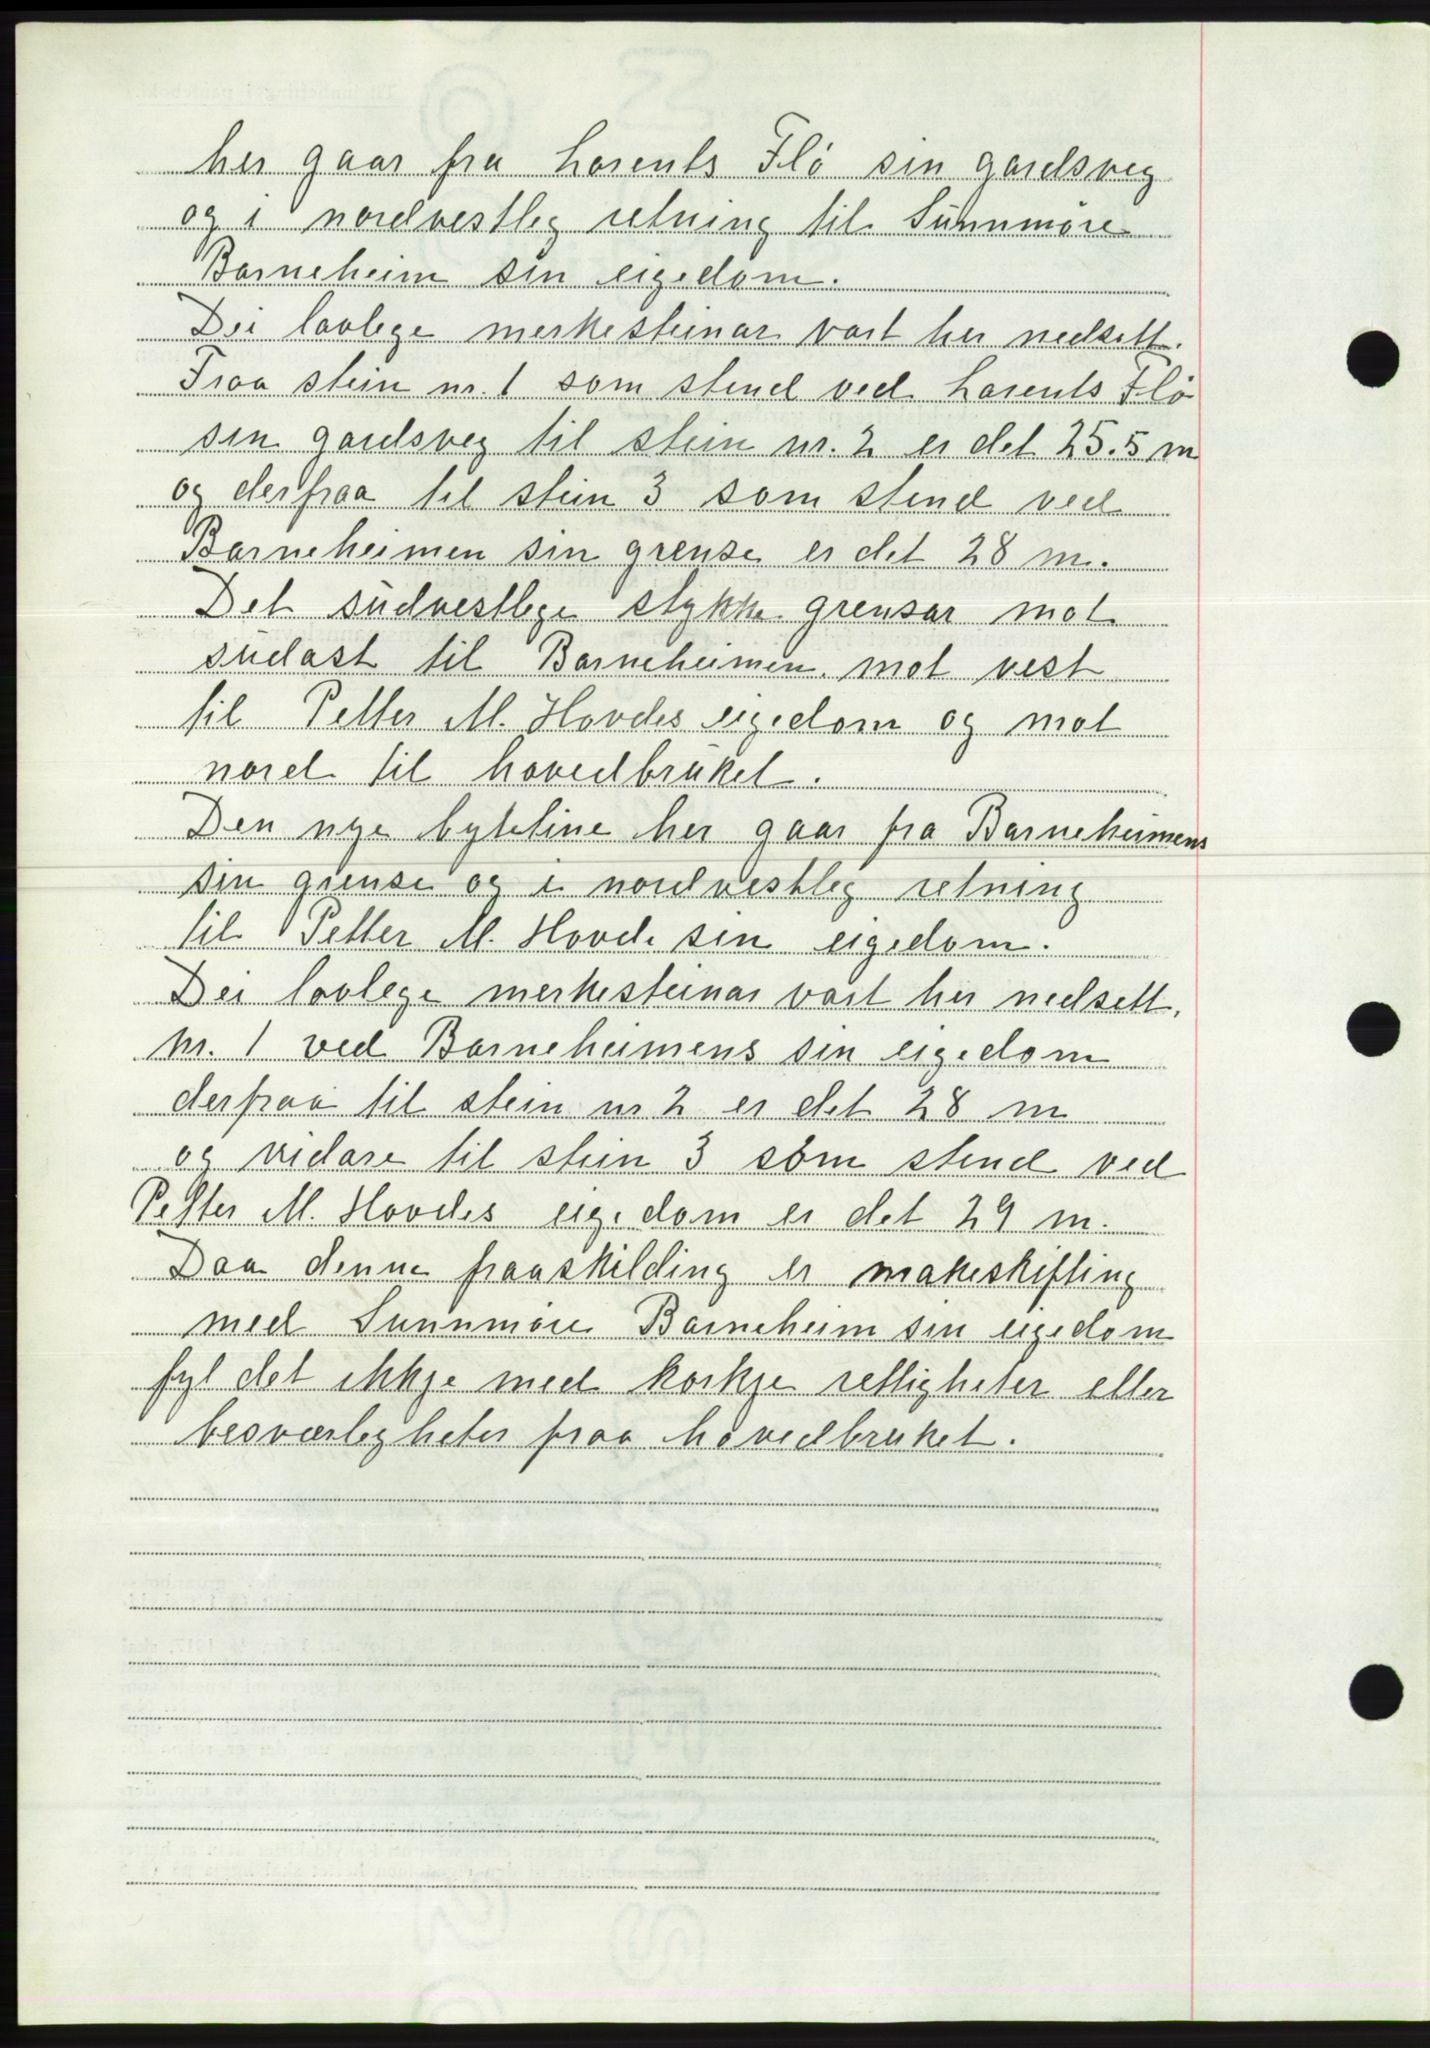 her gaar fra Larents Flö sin gardsveg
og i nordvestleg retning til Sünnmöre
Barneheim sin eigedom.
Dei lovlege merkesteinar vart her nedsett.
Fraa stein nr. 1 som stend ved Larents Flö
sin gardsveg til stein nr. 2 er det 25.5 m
og derfraa til stein 3 som stend ved
Barneheimen sin grense er det 28 m.
Det südvestlege stykke grensar mot
südaust til Barneheimen, mot vest
til Petter M. Hovdes eigedom og mot
nord til hovedbrüket.
Den nye byteline her gaar fra Barneheimens
sin grense og i nordvestleg retning
til Petter M. Hovde sin eigedom.
Dei lovlege merkesteinar vart her nedsett,
nr. 1 ved Barneheimens sin eigedom
derfraa til stein nr 2 er det 28 m
og vidare til stein 3 som stend ved
Petter M. Hovdes eigedom er det 29 m.
Daa denne fraaskilding er makeskifting
med Sunnmöre Barneheim sin eigedom
fyl det ikkje med korkje rettigheter eller
besværligheter fraa hovedbruket.